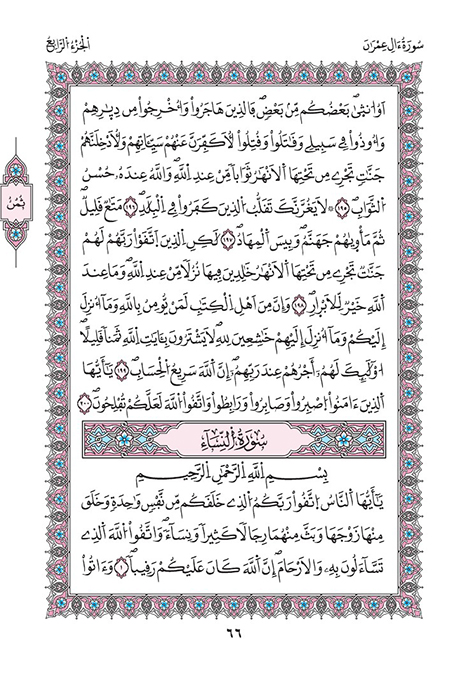 سُورَةُ ءَالِ عِمْرَٰنَ
اَلْجُزْءُ اَلرَّابِعُ
اَوُ ا۟نث۪ىٰۖ بَعْضُكُم مِّنۢ بَعْضٖۖ فَالذِينَ هَاجَرُواْ وَأُخْرِجُواْ مِن دِيٰ۪رِهِمْ
وَأُوذُواْ فِے سَبِيلِے وَقَٰتَلُواْ وَقُتِلُواْ لَأُكَفِّرَنَّ عَنْهُمْ سَيِّـَٔاتِهِمْ وَلَأُدْخِلَنَّهُمْ
جَنَّٰتٖ تَجْرِے مِن تَحْتِهَا اَ۬لَانْهَٰرُ ثَوَاباٗ مِّنْ عِندِ اِ۬للَّهِۖ وَاللَّهُ عِندَهُۥ حُسْنُ
اُ۬لثَّوَابِۖ ١٩٥ ۞ لَا يَغُرَّنَّكَ تَقَلُّبُ اُ۬لذِينَ كَفَرُواْ فِے اِ۬لْبِلَٰدِۖ ١٩٦ مَتَٰعٞ قَلِيلٞۖ
ثُمَّ مَأْو۪يٰهُمْ جَهَنَّمُۖ وَبِيسَ اَ۬لْمِهَادُۖ ١٩٧ لَٰكِنِ اِ۬لذِينَ اَ۪تَّقَوْاْ رَبَّهُمْ لَهُمْ
جَنَّٰتٞ تَجْرِے مِن تَحْتِهَا اَ۬لَانْهَٰرُ خَٰلِدِينَ فِيهَا نُزُلاٗ مِّنْ عِندِ اِ۬للَّهِۖ وَمَا عِندَ
اَ۬للَّهِ خَيْرٞ لِّلَابْر۪ارِۖ ١٩٨ وَإِنَّ مِنَ اَهْلِ اِ۬لْكِتَٰبِ لَمَنْ يُّومِنُ بِاللَّهِ وَمَآ أُنزِلَ
إِلَيْكُمْ وَمَآ أُنزِلَ إِلَيْهِمْ خَٰشِعِينَ لِلهِ لَا يَشْتَرُونَ بِـَٔايَٰتِ اِ۬للَّهِ ثَمَناٗ قَلِيلاًۖ
ا۟وْلَٰٓئِكَ لَهُمُۥٓ أَجْرُهُمْ عِندَ رَبِّهِمُۥٓۖ إِنَّ اَ۬للَّهَ سَرِيعُ اُ۬لْحِسَابِۖ ١٩٩ يَٰٓأَيُّهَا
اَ۬لذِينَ ءَامَنُواْ اُ۪صْبِرُواْ وَصَابِرُواْ وَرَابِطُواْ وَاتَّقُواْ اُ۬للَّهَ لَعَلَّكُمْ تُفْلِحُونَۖ ٢٠٠
ثُمُنْ
سُورَةُ اُ۬لنِّسَآءِ
بِسْمِ اِ۬للَّهِ اِ۬لرَّحْمَٰنِ اِ۬لرَّحِيمِ
يَٰٓأَيُّهَا اَ۬لنَّاسُ اُ۪تَّقُواْ رَبَّكُمُ اُ۬لذِے خَلَقَكُم مِّن نَّفْسٖ وَٰحِدَةٖ وَخَلَقَ
مِنْهَا زَوْجَهَا وَبَثَّ مِنْهُمَا رِجَالاٗ كَثِيراٗ وَنِسَآءٗۖ وَاتَّقُواْ اُ۬للَّهَ اَ۬لذِے
تَسَّآءَلُونَ بِهِۦ وَالَارْحَامَۖ إِنَّ اَ۬للَّهَ كَانَ عَلَيْكُمْ رَقِيباٗۖ ١ وَءَاتُواْ
٦٦